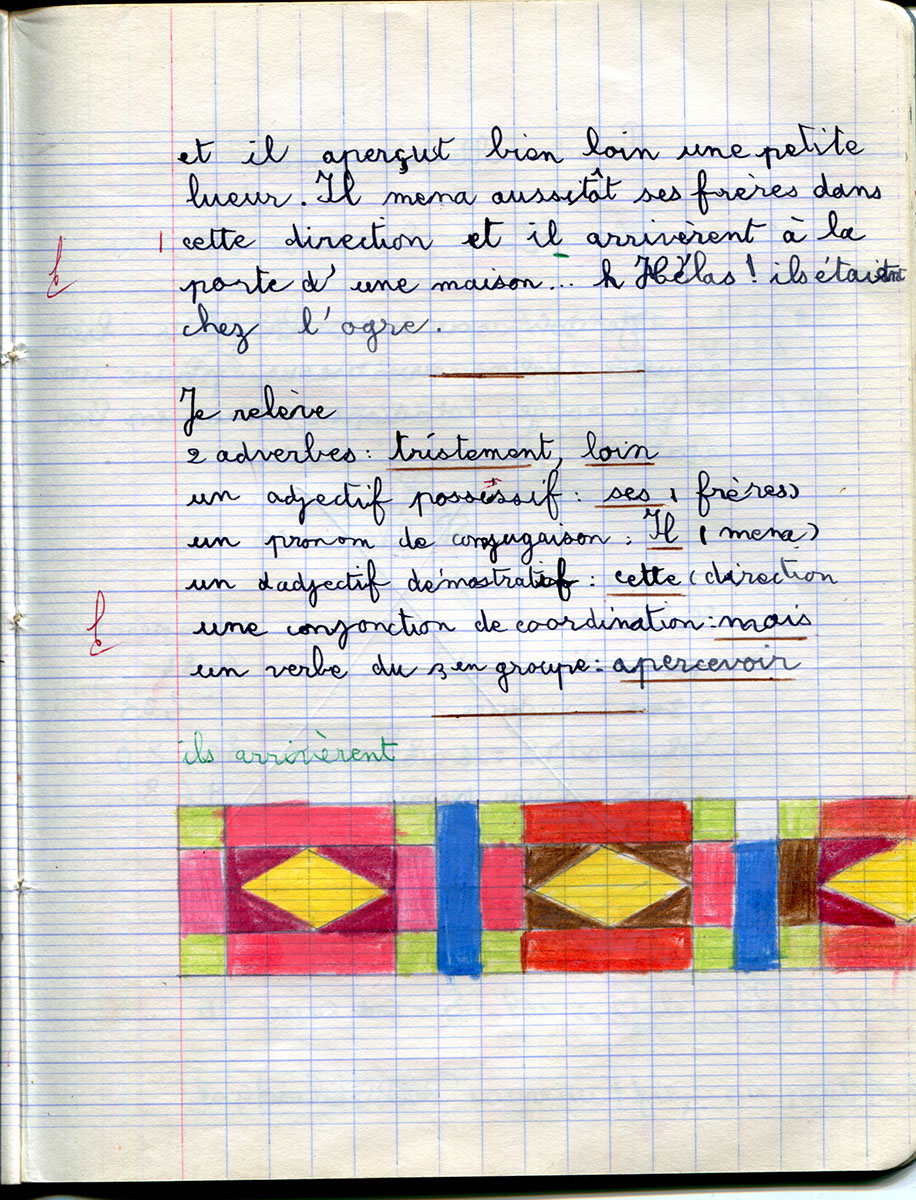 et il aperçut bien loin une petite
lueur. Il mena aussitôt ses frères dans
cette direction et il arrivèrent à la
porte d'une maison... h Hélas! ils étaient
chez l'ogre.
Je relève
2 adverbes : tristement, loin
un adjectif possessif : ses ( frères)
un pronom de conjugaison : Il ( mena)
un dadjectif démostratif : cette (direction
une conjonction de coordination : mais
un verbe du 3en groupe : apercevoir
ils arrivèrent